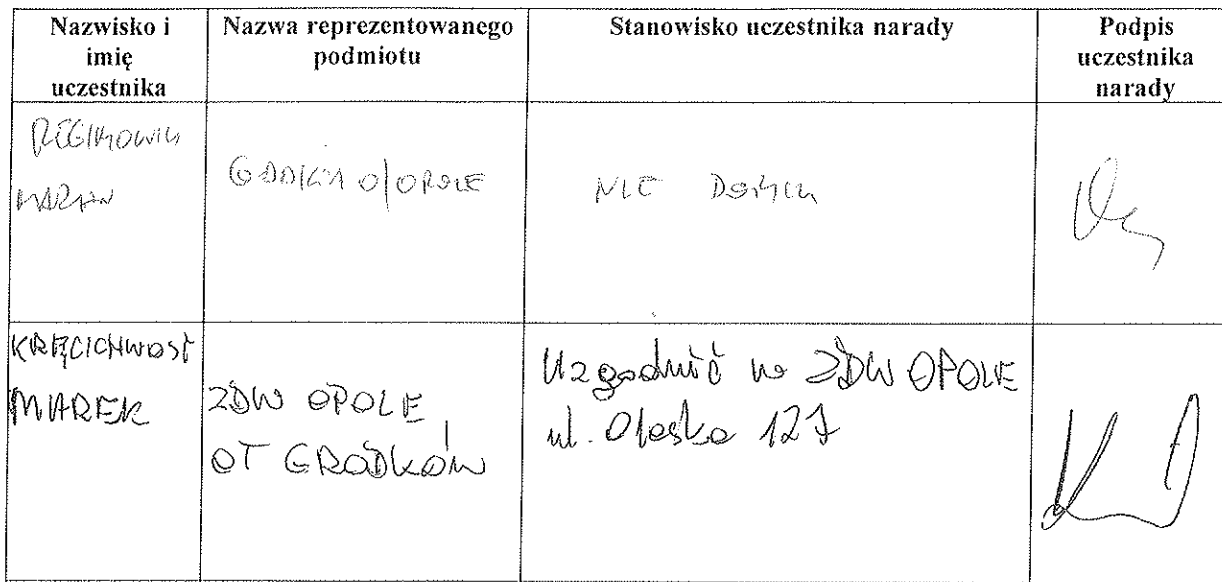 Nazwisko i
imię
uczestnika
Nazwa reprezentowanego
podmiotu
Stanowisko uczestnika narady
Podpis
uczestnika
narady
O/OPOLE
NIE DOTYCZY
KRĘCICHWOST
MAREK
ZDW OPOLE
OT GRODKÓW
Uzgodnić w ZDW OPOLE
ul. Oleska 127